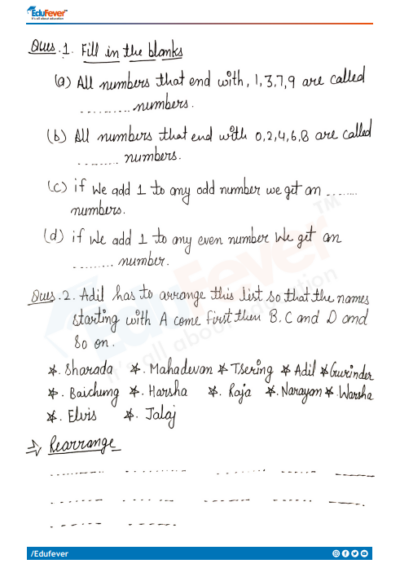 EduFever
It's all about education
Ques.1. Fill in the blanks
(a) All numbers that end with, 1,3,7,9 are called
........... numbers.
(b) All numbers that end with 0,2,4,6,8 are called
......... numbers.
(c) if We add 1 to any odd number we get an .......
numbers.
(d) if We add 1 to any even number We get an
......... number.
Ques.2. Adil has to arrange this list so that the names
starting with A come first then B. C and D and
So on.
*. Sharada *. Mahadevan * Tsering * Adil * Gurinder
*. Baichung *. Harsha *. Raja *. Narayan * Warsha
*. Elvis *. Jalaj
→ Rearrange
/Edufever